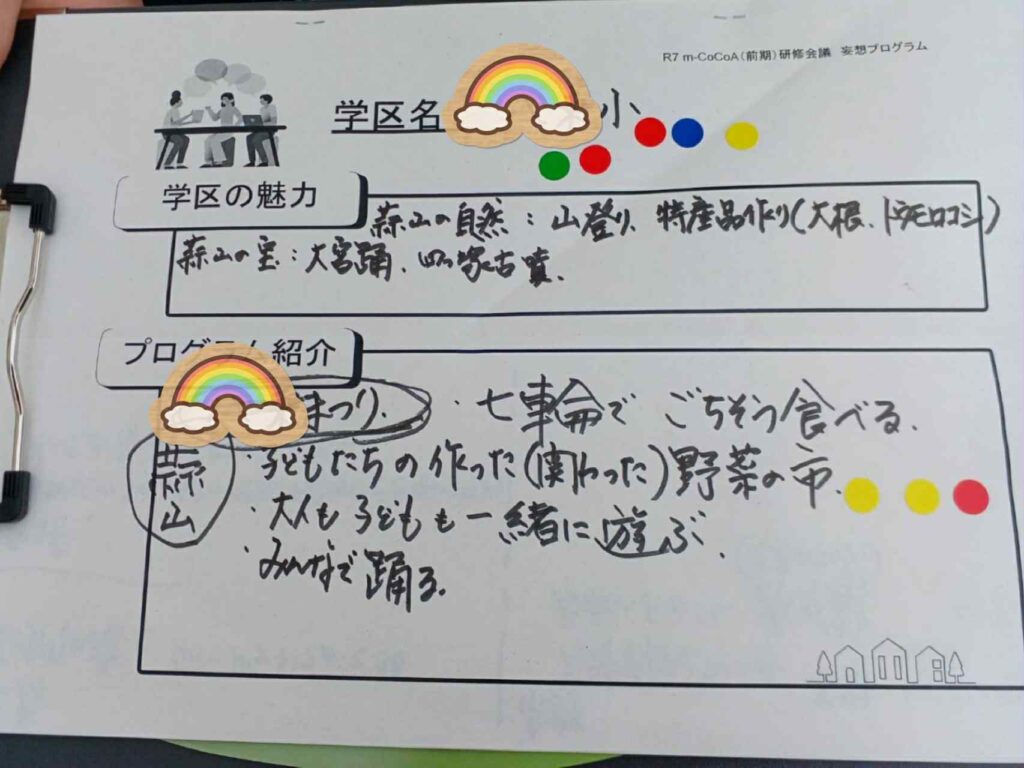 R7 m-CoCoA(前期)研修会議 妄想プログラム
学区名 小
学区の魅力
蒜山の自然:山登り、特産品作り(大根、トウモロコシ)
蒜山の宝:大宮踊、四つ塚古墳、
プログラム紹介
まつり、 ・七輪で ごちそう食べる、
蒜山
・子どもたちの作った(関わった)野菜の市、
・大人も子どもも一緒に遊ぶ、
・みんなで踊る、